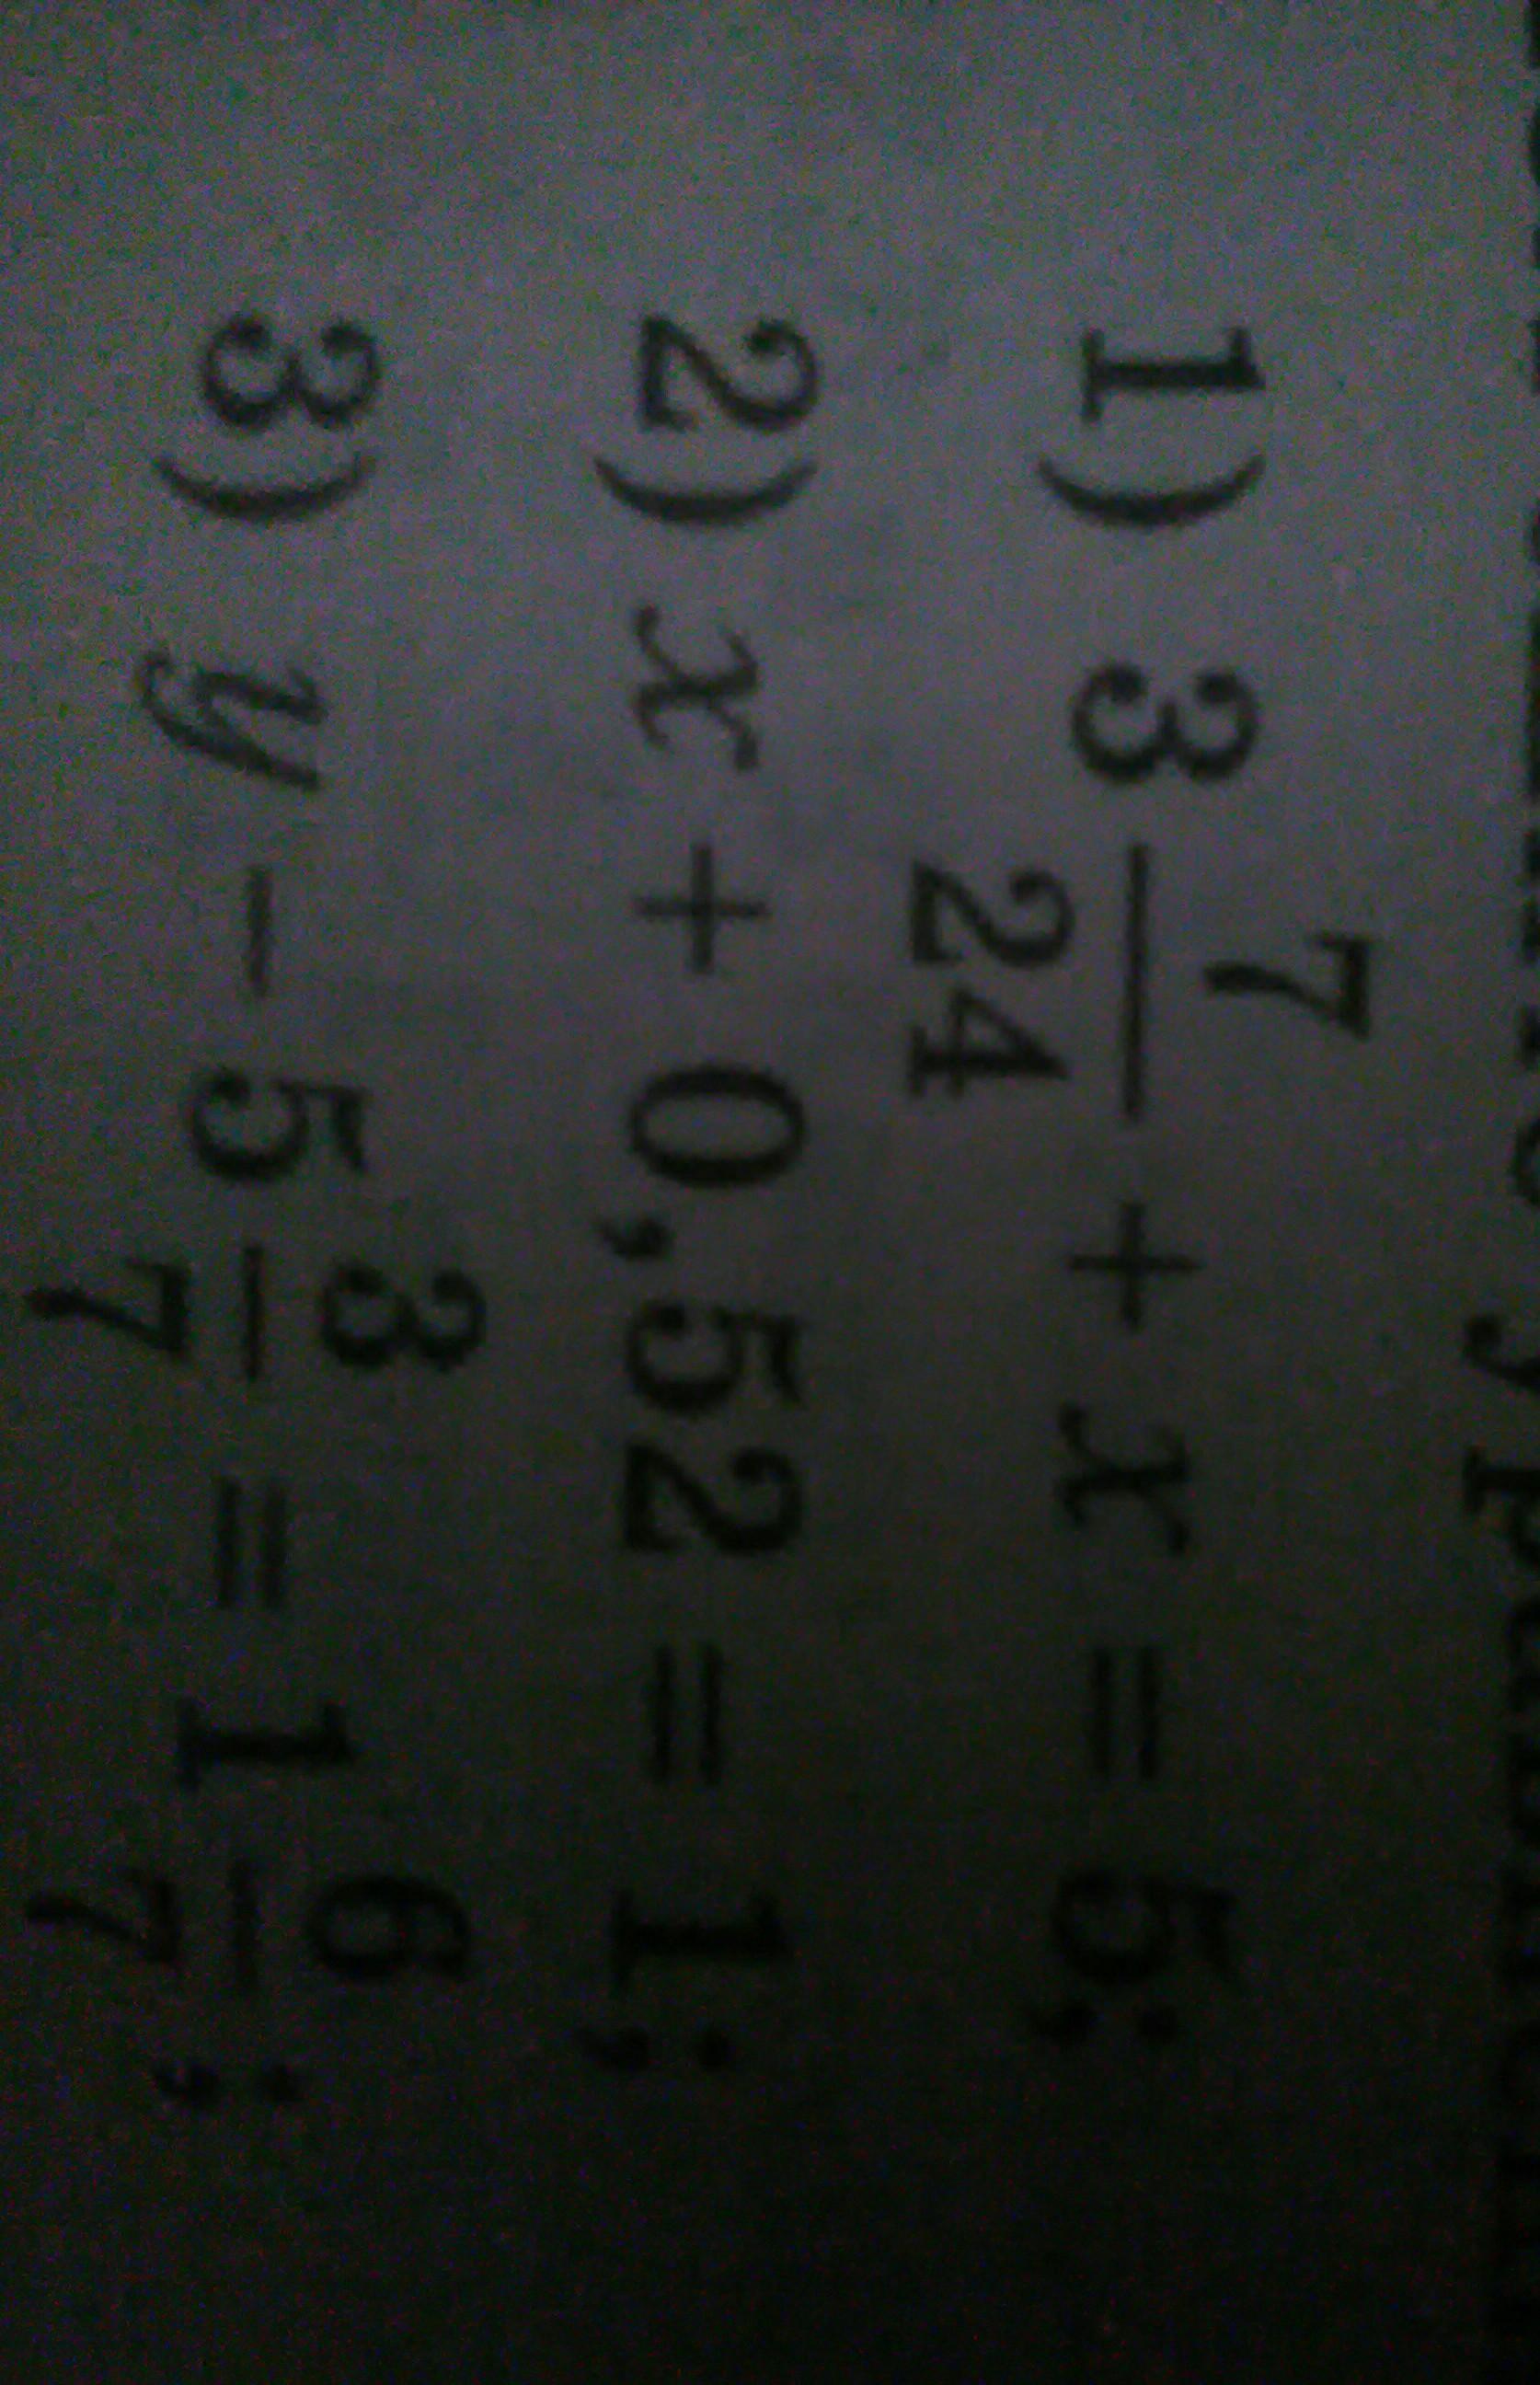 1) 3 7/24 + x = 5;
2) x + 0,52 = 1;
3) y − 5 3/7 = 1 6/7;